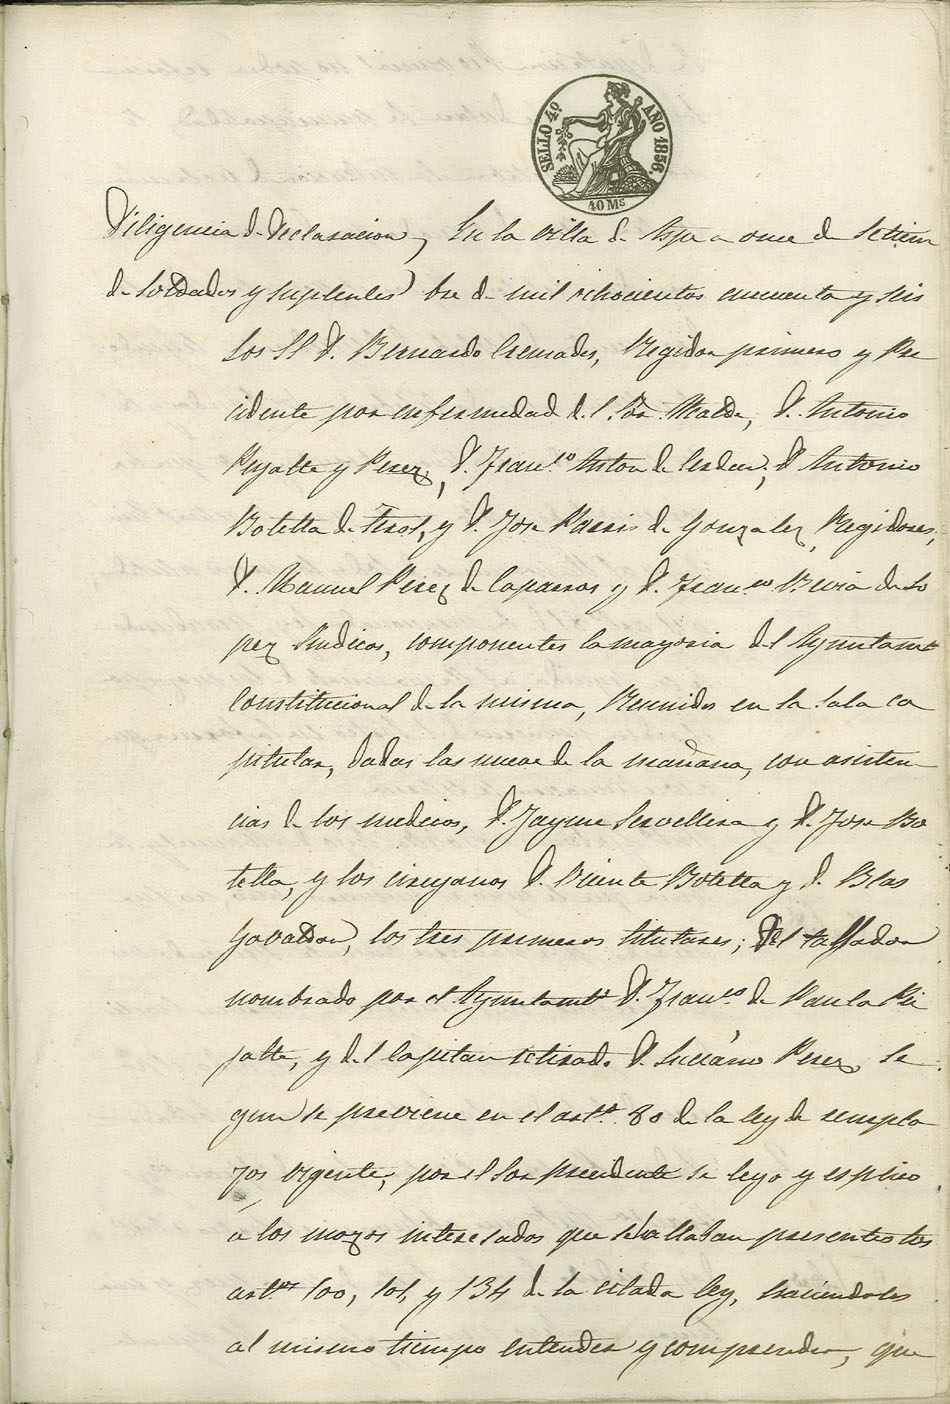 SELLO 4º AÑO 1856.
40 Ms
Diligencia de declaracion, En la villa de Aspe a once de Setiem
de Soldados y suplentes) bre de mil ochocientos cincuenta y seis
los SS D. Bernardo Cremades, Regidor primero y Pre
cidente por enfermedad del Sor. Alcalde, D. Antonio
Pujalte y Perez, D. Franco. Anton de Cerdan, D. Antonio
Botella de Terol, y D. Jose Parris de Gonzalez, Regidores,
D. Manuel Perez de Caparros y D. Franco. Beviá de Lo
pez Sindicos, componentes la mayoria del Ayuntamto
Constitucional de la misma, Reunidos en la sala ca
pitular, dadas las nueve de la mañana, con asisten
cias de los medicos, D. Jayme Servellera y D. Jose Bo
tella, y los cirujanos D. Vicente Botella y D. Blas
Gavaldon, los tres primeros titulares; del tallador
nombrado por el Ayuntamto D. Franco. de Paula Pu
jalte, y del Capitan retirado D. Luciano Perez, se
gun se previene en el arto. 80 de la ley de rempla
zos vigente, por el Sor precidente se leyo y esplico
a los mozos interesados que se hallaban presentes los
artos 100, 101, y 134 de la citada ley, haciendoles
al mismo tiempo entender y comprender, que